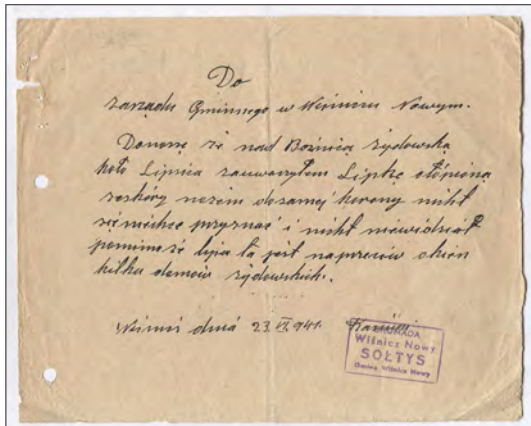 Do
Zarządu Gminnego w Wiśniczu Nowym.
Donoszę że nad Bożnicą żydowską
koło Lipnica zauważyłem Lipkę obłónioną
zeskóry nożem dosamej korony nikt
sięniechce przyznać i nikt niewidział
pomimo że lipa ta jest naprzeciw okien
kilku domów żydowskich.
Wiśnicz dnia 23.VI.941.
GROMADA
Wiśnicz Nowy
SOŁTYS
Gmina Wiśnicz Nowy